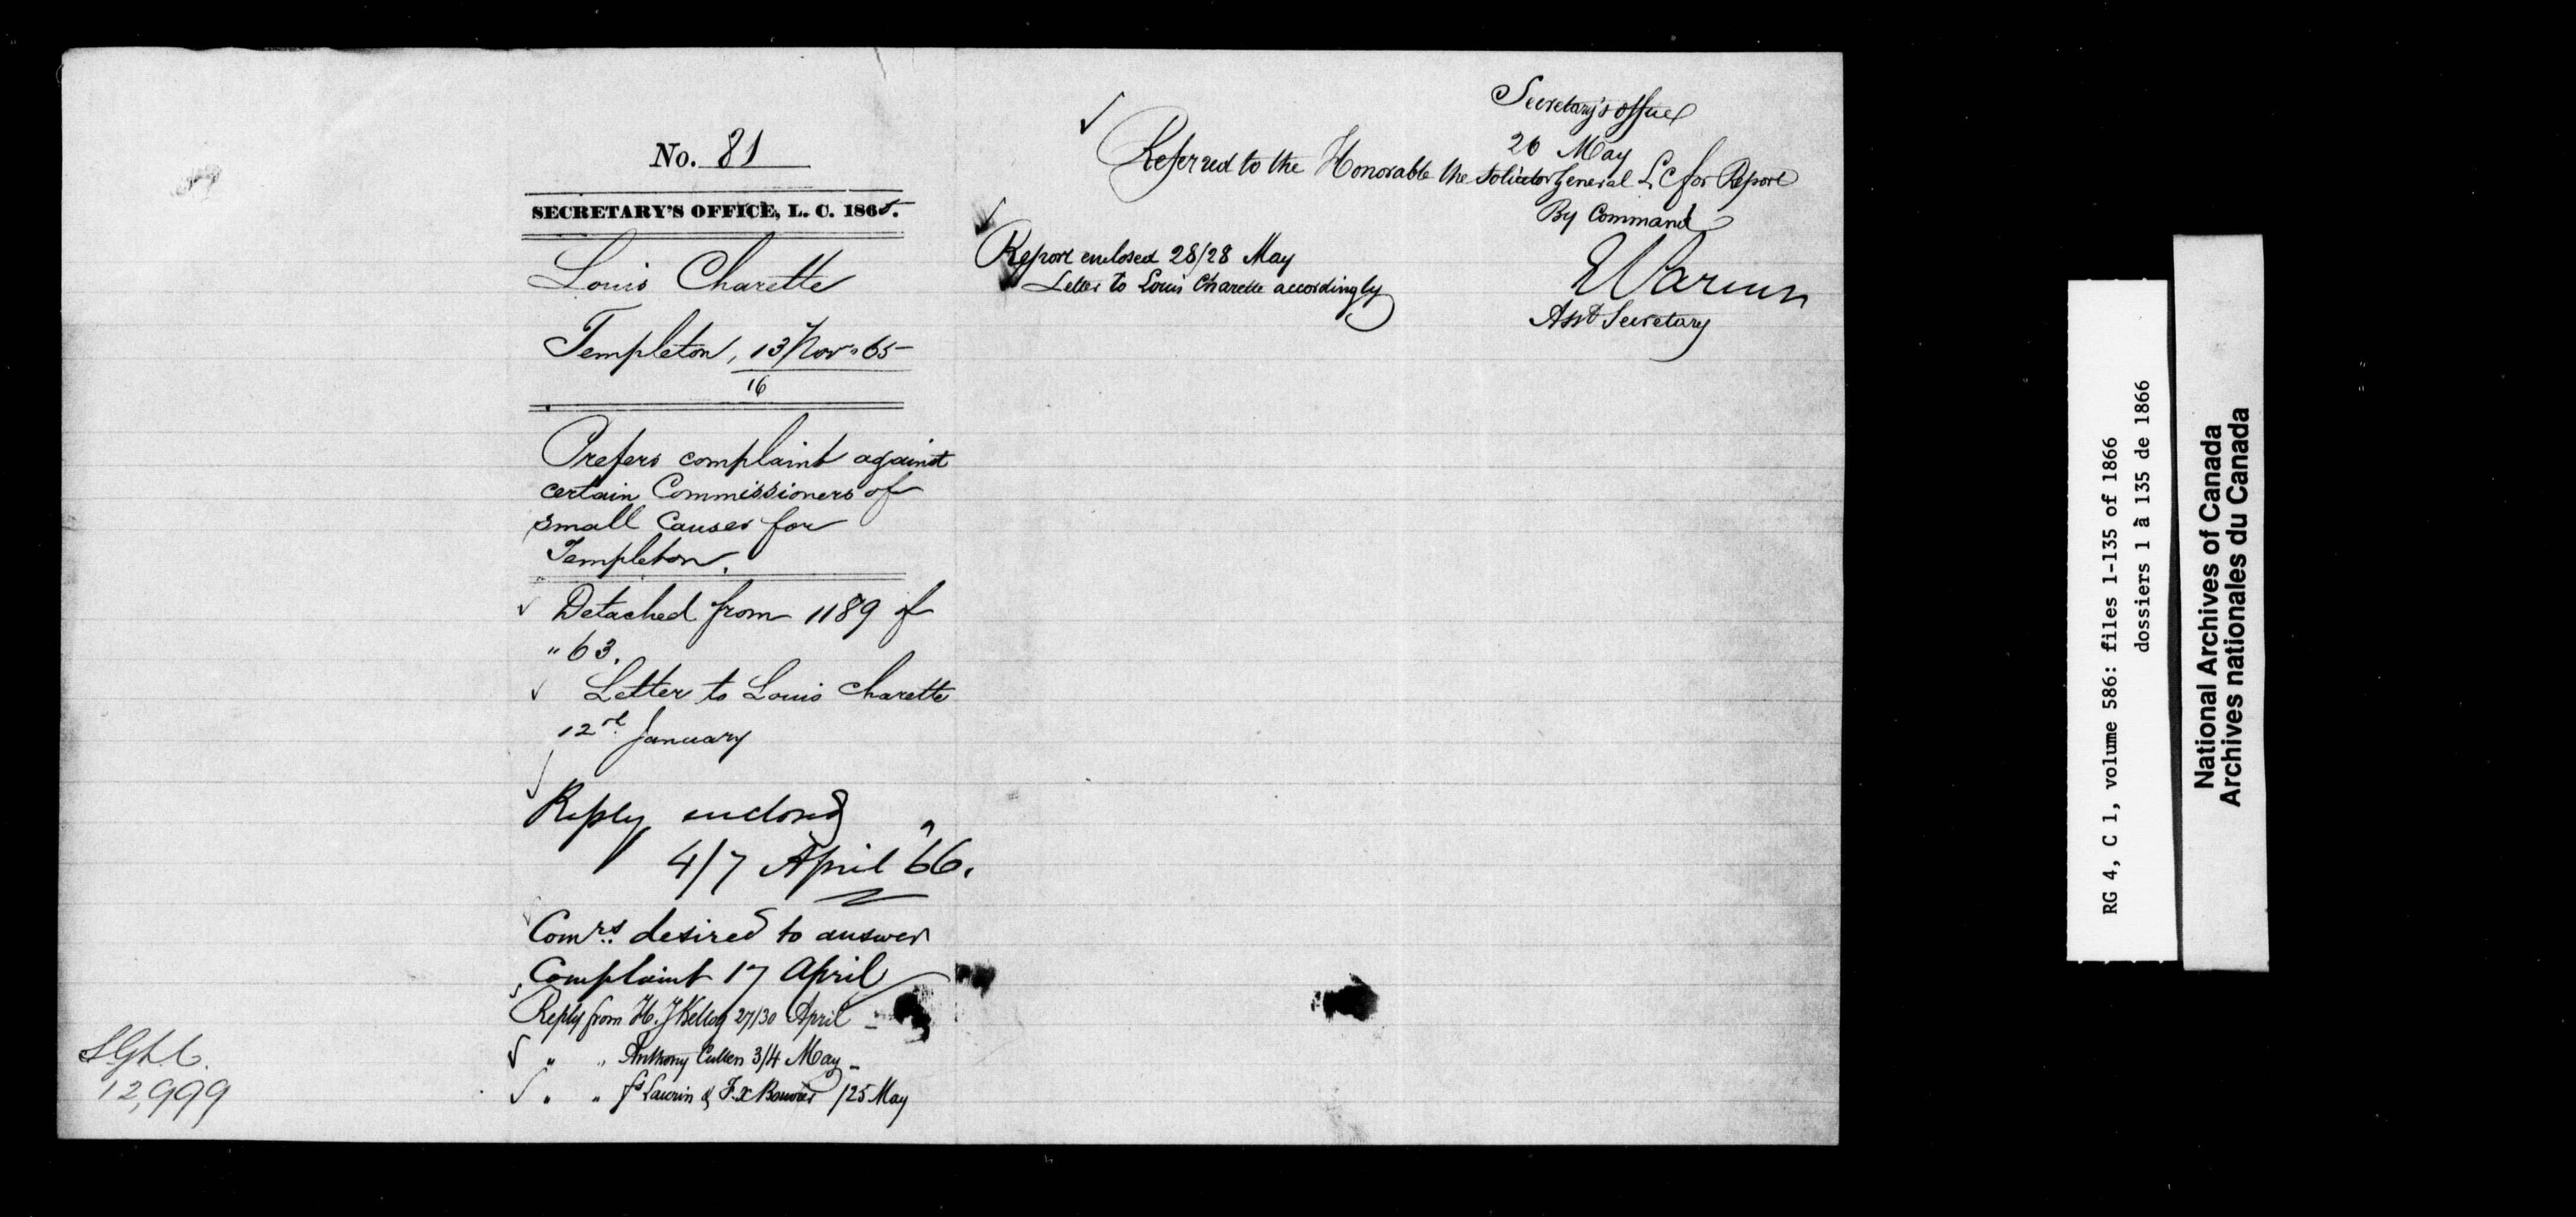 No. 81
SECRETARY'S OFFICE, L. C. 1865.
Louis Charette
Templeton, 13 Nov. 65
16
Prefers complaint against
certain Commissioners of
small Causes for
Templeton.
Detached from 1189 of
"63.
Letter to Louis Charette
12 January
Reply enclosed
4/7 April '66.
Comrs. desired to answer
Complaint 17 April
Reply from H. J Kellog 27/30 April
" " Anthony Cullen 3/4 May
" " Laurin & F. X /25 May
12,999
Secretary's office
26 May
Referred to the Honorable the Solicitor General L C for Report
By Command
Asst Secretary
Report enclosed 28/28 May
Letter to Louis Charette accordingly
RG 4, C 1, volume 586: files 1-135 of 1866
dossiers 1 à 135 de 1866
National Archives of Canada
Archives nationales du Canada